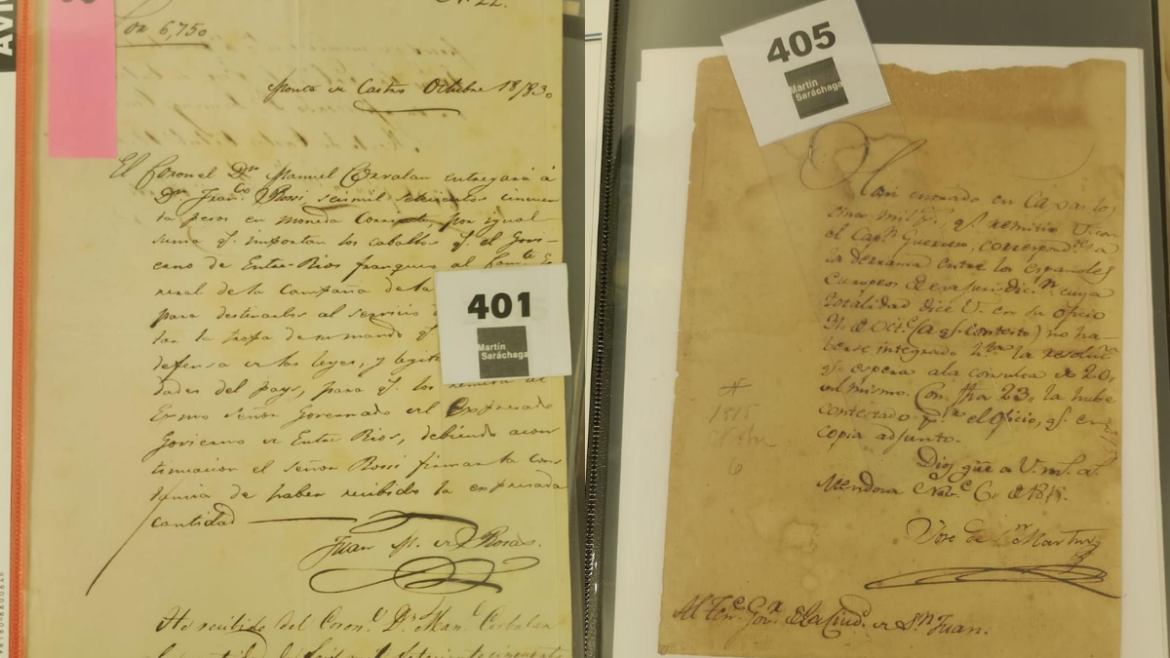 Son 6,750
Monte de Castro Octubre 18/830
El Coronel Dn Manuel Corvalan entregará á
Dn Franco Rossi seis mil setecientos cincuen
ta pesos en moneda Corriente por igual
suma q. importan los caballos q. el Govi-
erno de Entre-Rios franqueó al Comte Ge
neral de la Campaña de la
para destinarlos al servicio
la tropa de su mando q.
defensa de las leyes, y legiti
dades del pays, para q. los remita al
Exmo Señor Governador del Expresado
Govierno de Entre Rios, debiendo acon
tinuacion el Señor Rossi firmar la cons
tancia de haber recibido la expresada
cantidad
Juan M. de Rosas.
He recibido del Coronl Dn Manl Corbalan
401
Martín
Saráchaga
405
Martín
Saráchaga
Han entrado en Caxas los
cinco mil ps. q. remitió V. con
el Capn Guerrero, correspondtes a
la derrama entre los Españoles
Europeos de esa jurisdicn cuya
totalidad dice V. en su oficio
31 de Octe (a q. contesto) no ha
berse integrado la resolun
q. espera a la consulta de 20,
del mismo. Con fha 23, la hube
contestado el oficio, q. en
copia adjunto.
Dios gue a V. m. a.
Mendoza Nove 6 de 1815.
José de Sn Martin
Al Tente Govr de la Ciud. de Sn Juan.
1815
Nbre
6